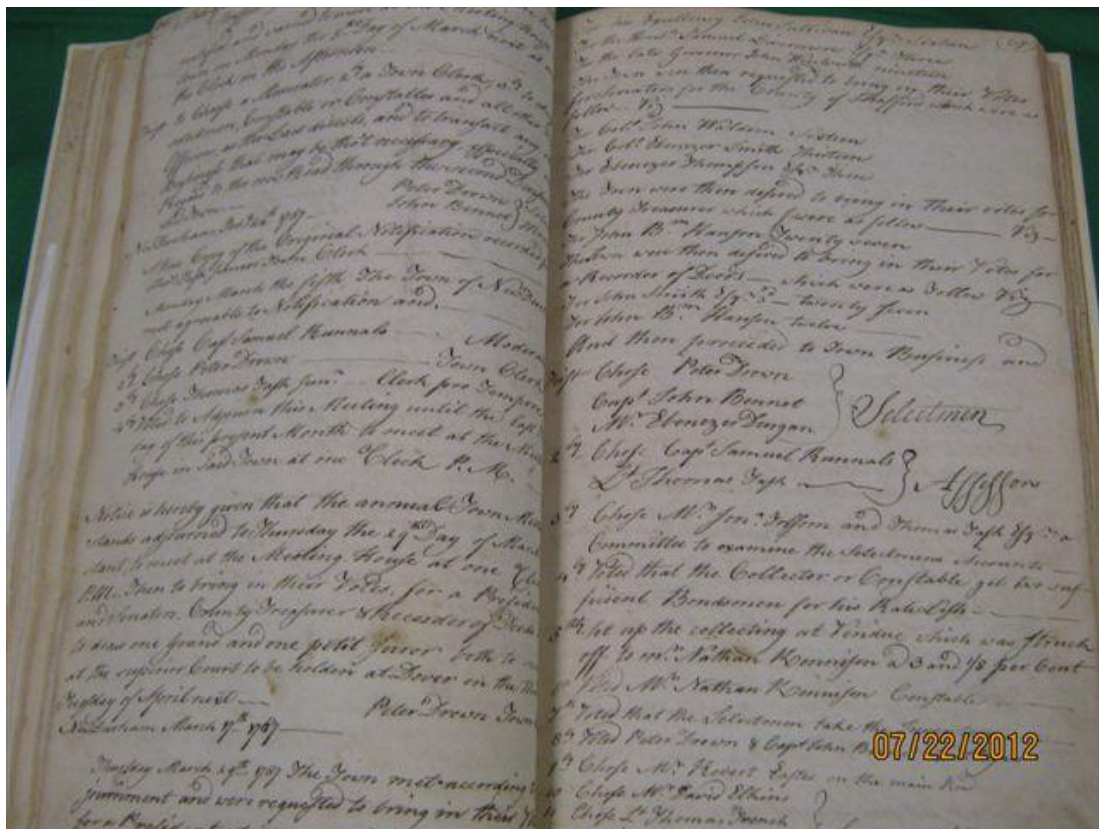 Town on Monday the 5th Day of March next at
the Clock in the Afternoon
first to Chose a Moderator 2ly a Town Clerk, 3ly to
Selectmen, Constable or Constables and all other
Officers, as the Law directs, and to transact any
that may be tho't necessary, especially
to the Road through the second Division
Peter Drown
John Bennet
New Durham Feb 1787
A true Copy of the Original Notification recorded
Town Clerk
Monday March the fifth The Town of New Dur
met agreeable to Notification and
first Chose Capt Samuel Runnals Modera
2ly Chose Peter Drown Town Clerk
3ly Chose Thomas Tash Junr Clerk pro Tempore
4ly Voted to Adjourn this Meeting until the last
day of this present Month to meet at the Meet
house in Said Town at one oClock P.M.
Notice is hereby given that the annual Town Meet
stands adjourned to Thursday the 29th Day of March
to meet at the Meeting House at one
P.M. Then to bring in their Votes, for a Preside
and Senator, County Treasurer & Recorder of Deeds
to draw one Grand and one petit Juror both to
at the superior Court to be holden at Dover on the
Tuesday of April next
New Durham March 17th 1787
Peter Drown Town
Thursday March 29th 1787 The Town met according
journment and were requested to bring in their
for a President
For his Excellency John Sullivan Esqr Sixteen
For the Honbl Samuel Livermore Esqr Three
For the late Governor John Wentworth nineteen
The Town were then requested to bring in their Votes
for Senator for the County of Strafford which were as
follow Viz
For Colo John Waldron Sixteen
For Colo Ebenezer Smith Thirteen
For Ebenezer Thompson Esqr Three
The Town were then desired to bring in Their votes for
County Treasurer which were as follow Viz
For John Bm Hanson Twenty seven
The Town were then desired to bring in their Votes for
a Recorder of Deeds which were as Follow Viz
For John Smith Esqr twenty
For John Bm Hanson twelve
And then proceeded to Town Business and
First Chose Peter Drown
Capt John Bennet
Mr Ebenezer Durgan
Selectmen
2ly Chose Capt Samuel Runnals
Lt Thomas Tash
Assessors
3ly Chose Mr Jona Folsom and Thomas Tash Esqr a
Committee to examine the Selectmens Accounts
4ly Voted that the Collector or Constable get two suf-
ficient Bondsmen for his Rate Lists
5thly Set up the collecting at Vendue which was struck
off to mr Nathan Kennison a 3 and 1/8 per Cent
Voted Mr Nathan Kennison Constable
7th Voted that the Selectmen take the
8ly Voted Peter Drown & Capt John B
9ly Chose Mr Robert Eastes on the main Rod
10 Chose Mr David Elkins
11 Chose Lt Thomas French
07/22/2012